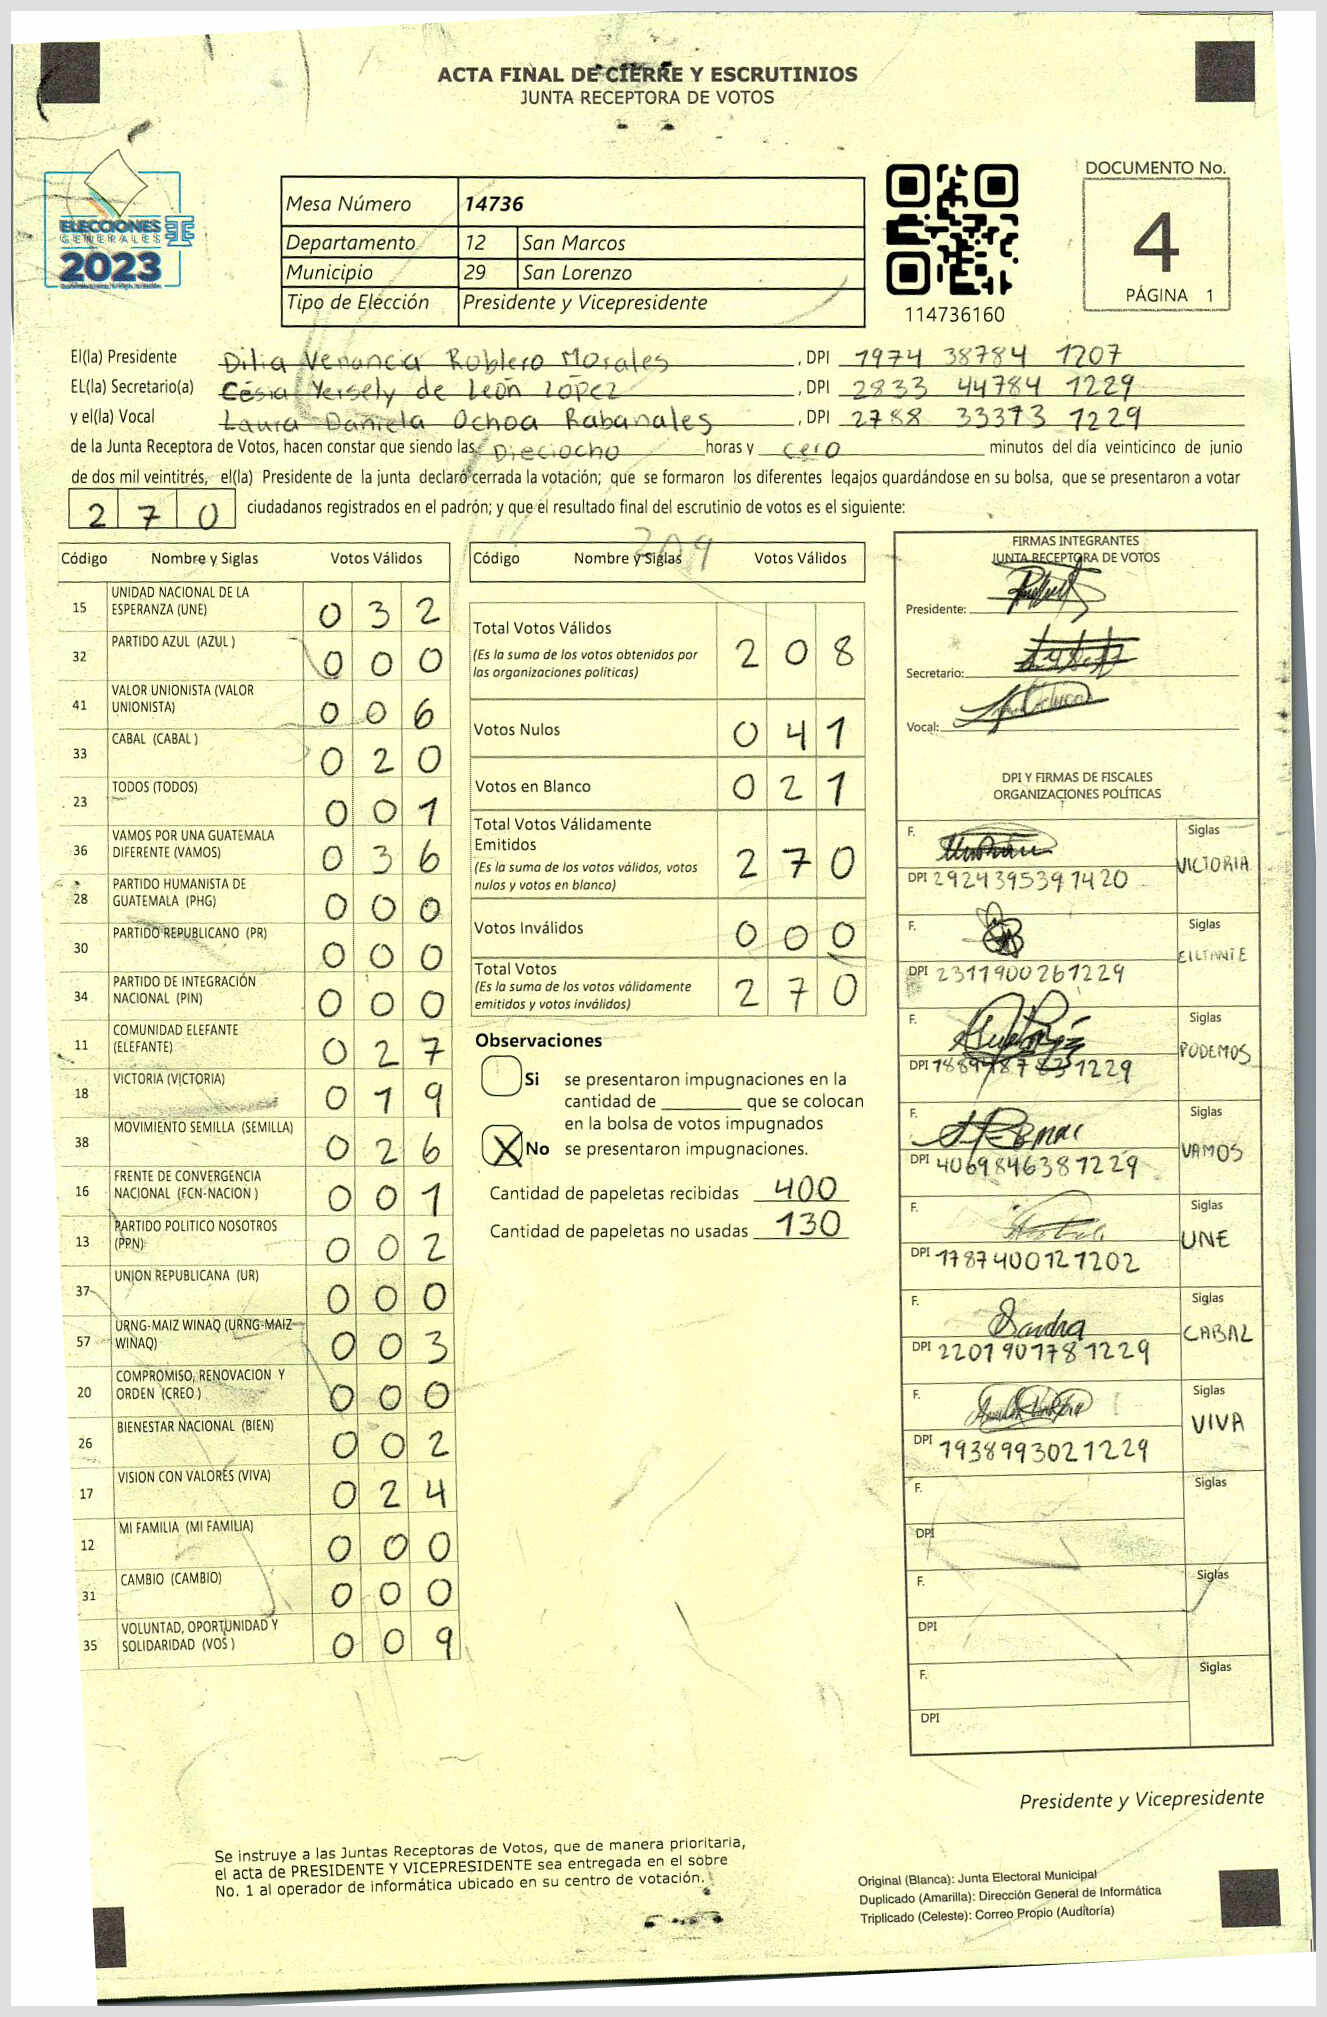 ACTA FINAL DE CIERRE Y ESCRUTINIOS
JUNTA RECEPTORA DE VOTOS
ELECCIONES
GENERALES
2023
Mesa Número 14736
Departamento 12 San Marcos
Municipio 29 San Lorenzo
Tipo de Elección Presidente y Vicepresidente
114736160
DOCUMENTO No.
4
PÁGINA 1
El(la) Presidente Dilia Venancia Roblero Morales, DPI 1974 38784 1207
EL(la) Secretario(a) Césia Yersely de León López, DPI 2833 44784 1229
y el(la) Vocal Laura Daniela Ochoa Rabanales, DPI 2788 33373 1229
de la Junta Receptora de Votos, hacen constar que siendo las Dieciocho horas y cero minutos del día veinticinco de junio
de dos mil veintitrés, el(la) Presidente de la junta declaró cerrada la votación; que se formaron los diferentes legajos guardándose en su bolsa, que se presentaron a votar
270 ciudadanos registrados en el padrón; y que el resultado final del escrutinio de votos es el siguiente:
209
Código Nombre y Siglas Votos Válidos
15 UNIDAD NACIONAL DE LA
ESPERANZA (UNE) 032
32 PARTIDO AZUL (AZUL ) 000
41 VALOR UNIONISTA (VALOR
UNIONISTA) 006
33 CABAL (CABAL ) 020
23 TODOS (TODOS) 001
36 VAMOS POR UNA GUATEMALA
DIFERENTE (VAMOS) 036
28 PARTIDO HUMANISTA DE
GUATEMALA (PHG) 000
30 PARTIDO REPUBLICANO (PR) 000
34 PARTIDO DE INTEGRACIÓN
NACIONAL (PIN) 000
11 COMUNIDAD ELEFANTE
(ELEFANTE) 027
18 VICTORIA (VICTORIA) 019
38 MOVIMIENTO SEMILLA (SEMILLA) 026
16 FRENTE DE CONVERGENCIA
NACIONAL (FCN-NACION ) 001
13 PARTIDO POLITICO NOSOTROS
(PPN) 002
37 UNION REPUBLICANA (UR) 000
57 URNG-MAIZ WINAQ (URNG-MAIZ
WINAQ) 003
20 COMPROMISO, RENOVACION Y
ORDEN (CREO ) 000
26 BIENESTAR NACIONAL (BIEN) 002
17 VISION CON VALORES (VIVA) 024
12 MI FAMILIA (MI FAMILIA) 000
31 CAMBIO (CAMBIO) 000
35 VOLUNTAD, OPORTUNIDAD Y
SOLIDARIDAD (VOS ) 009
Código Nombre y Siglas Votos Válidos
Total Votos Válidos
(Es la suma de los votos obtenidos por
las organizaciones políticas) 208
Votos Nulos 041
Votos en Blanco 021
Total Votos Válidamente
Emitidos
(Es la suma de los votos válidos, votos
nulos y votos en blanco) 270
Votos Inválidos 000
Total Votos
(Es la suma de los votos válidamente
emitidos y votos inválidos) 270
Observaciones
Si se presentaron impugnaciones en la
cantidad de ________ que se colocan
en la bolsa de votos impugnados
X No se presentaron impugnaciones.
Cantidad de papeletas recibidas 400
Cantidad de papeletas no usadas 130
FIRMAS INTEGRANTES
JUNTA RECEPTORA DE VOTOS
Presidente:
Secretario:
Vocal:
DPI Y FIRMAS DE FISCALES
ORGANIZACIONES POLÍTICAS
F. Siglas
DPI 2924395391420 VICTORIA
F. Siglas
DPI 2311900261229
F. Siglas
DPI 1229 PODEMOS
F. Siglas
DPI 4069846381229 VAMOS
F. Siglas
DPI 1787400121202 UNE
F. Sandra Siglas
DPI 2201901781229 CABAL
F. Siglas
DPI 1938993021229 VIVA
F. Siglas
DPI
F. Siglas
DPI
F. Siglas
DPI
Presidente y Vicepresidente
Se instruye a las Juntas Receptoras de Votos, que de manera prioritaria,
el acta de PRESIDENTE Y VICEPRESIDENTE sea entregada en el sobre
No. 1 al operador de informática ubicado en su centro de votación.
Original (Blanca): Junta Electoral Municipal
Duplicado (Amarilla): Dirección General de Informática
Triplicado (Celeste): Correo Propio (Auditoría)